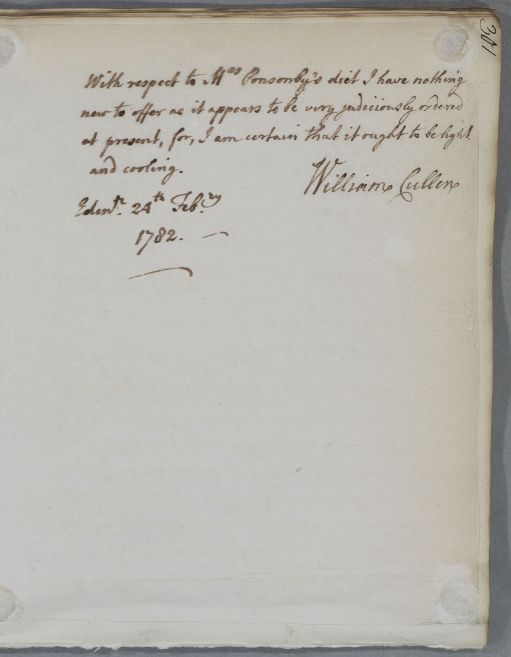 301
With respect to Mrs Ponsonby's diet I have nothing
new to offer as it appears to be very judiciously ordered
at present, for, I am certain that it ought to be light
and cooling.
William Cullen
Edenr. 24th Feb.ry
1782. —